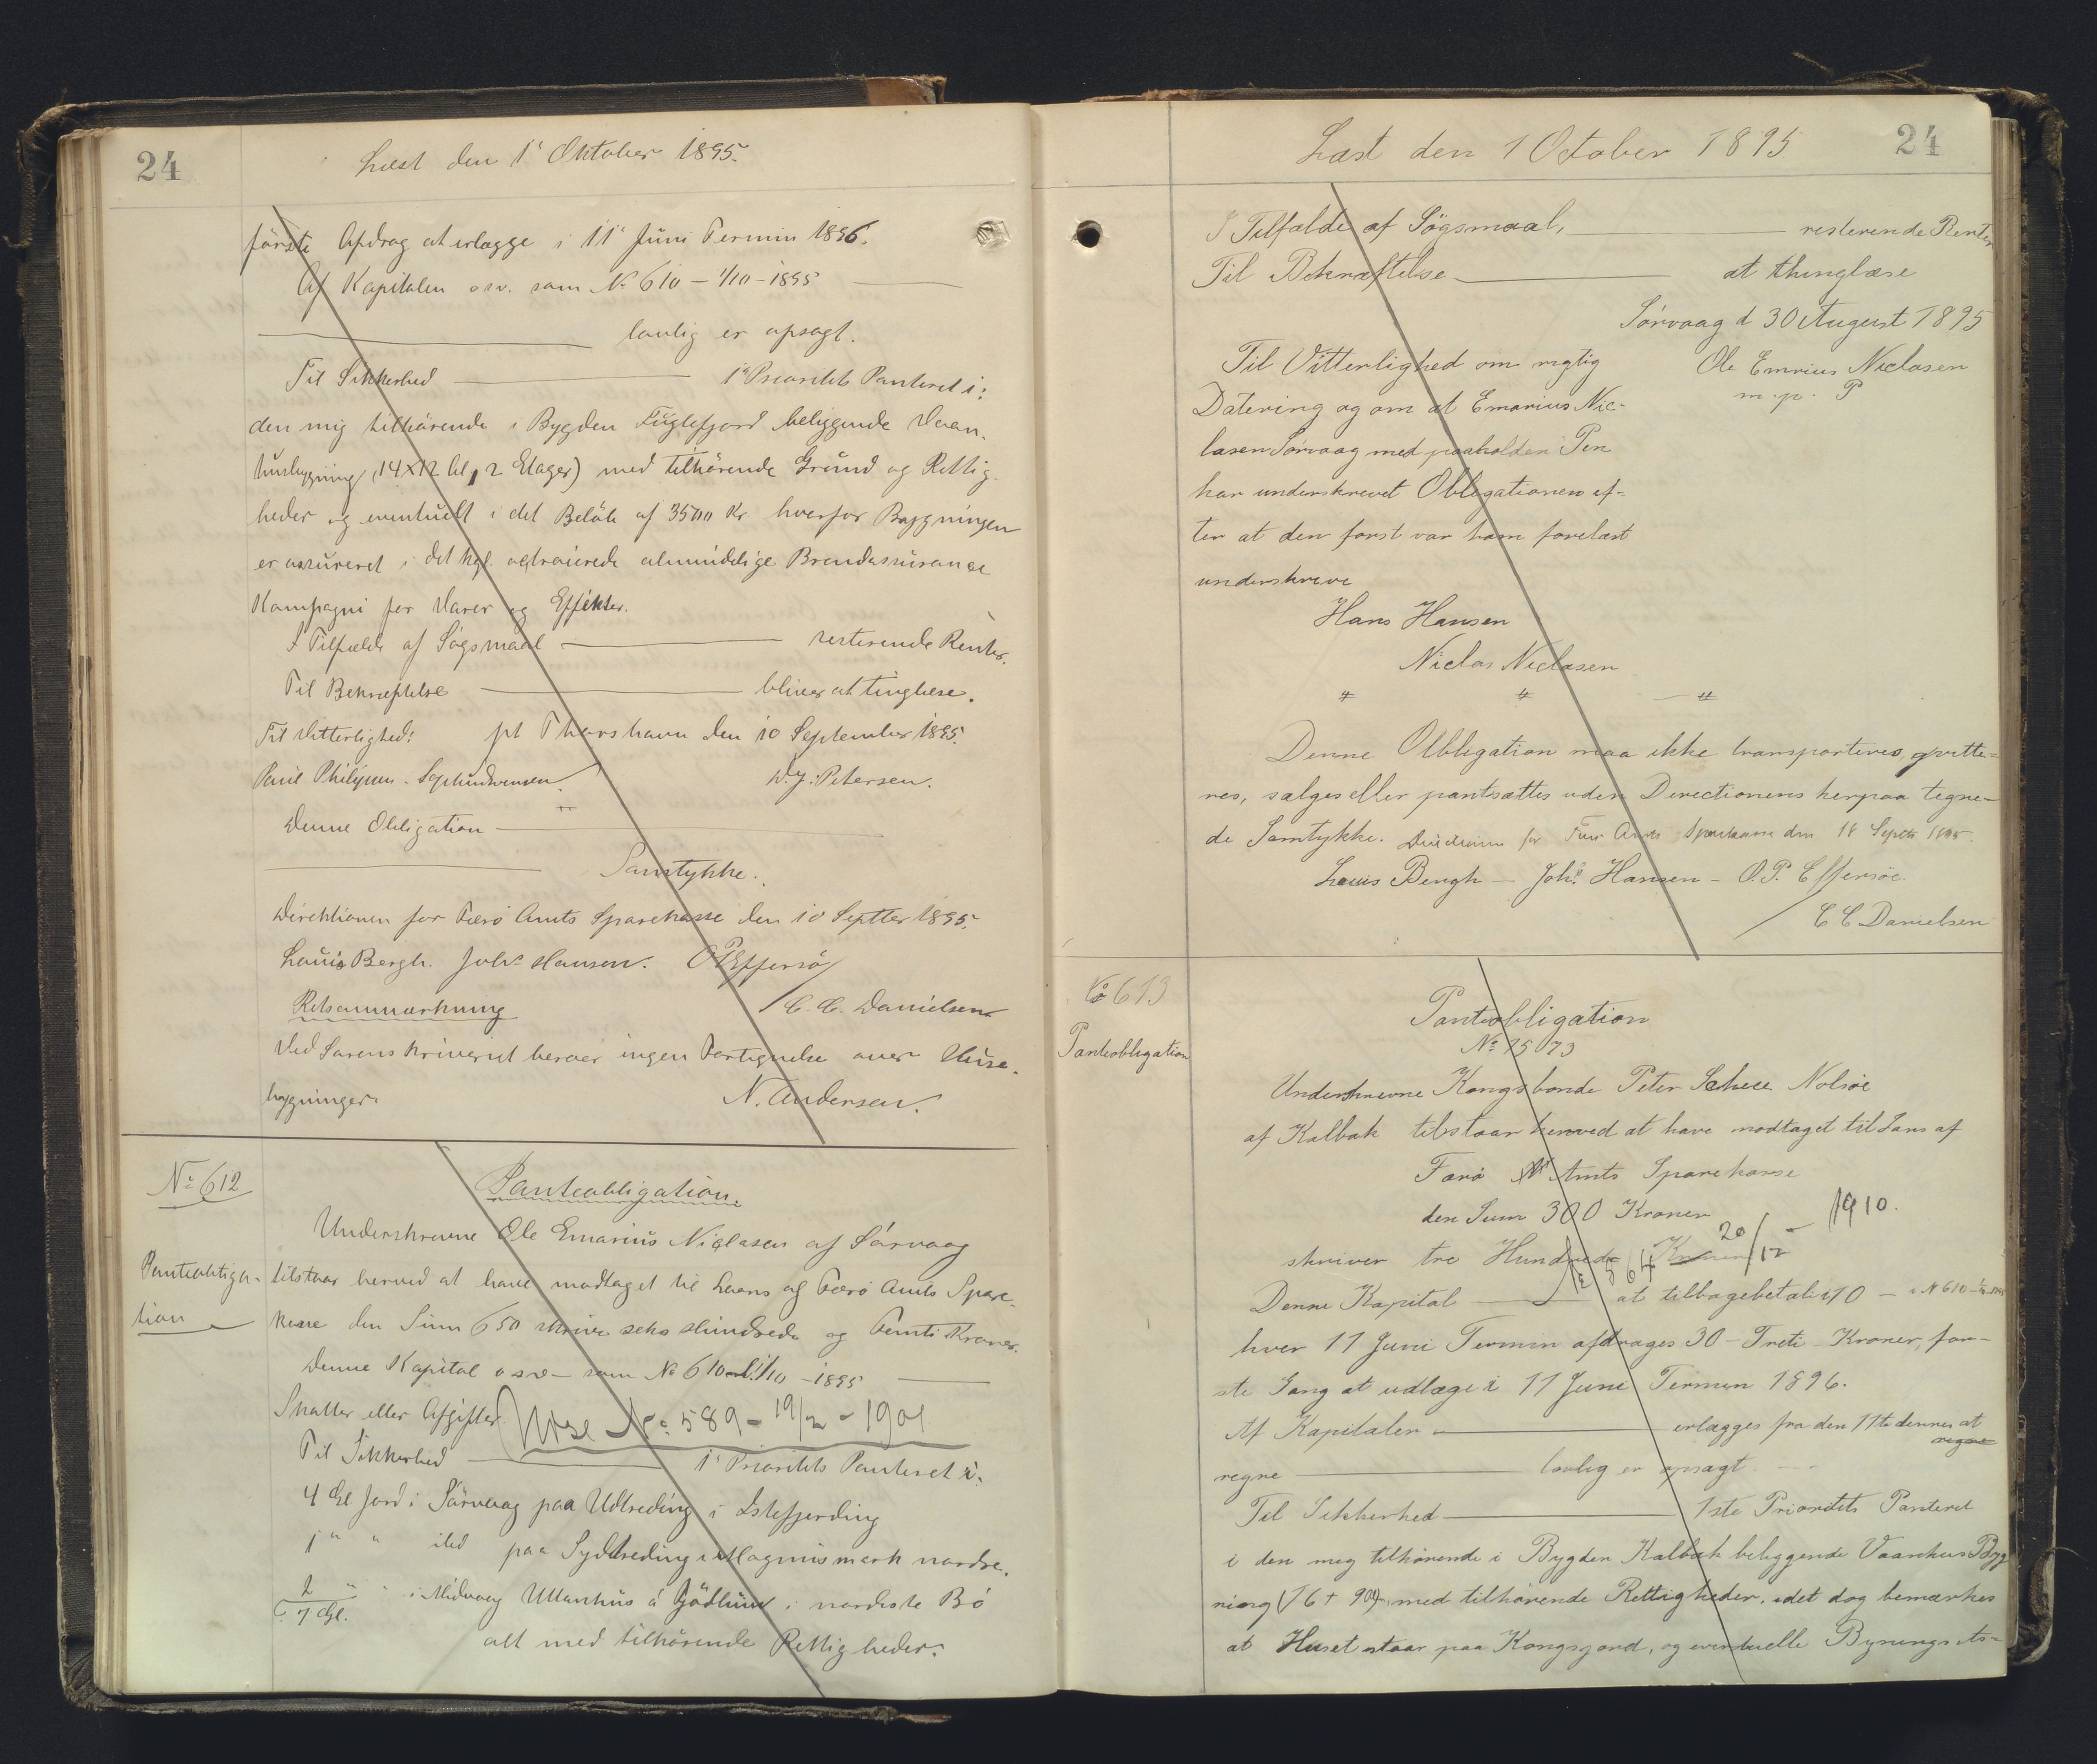 24
Læst den 1' Oktober 1895.
förste Afdrag at erlægge i 11' Juni Termin 1896.
Af Kapitalen osv. som No 610 - 1/10 - 1895
lovlig er opsagt.
Til Sikkerhed 1' Prioritets Panteret i:
den mig tilhörende i Bygden Fuglefjord beliggende Vaan-
husbygning (14x12 Al, 2 Etager) med tilhörende Grund og Rettig-
heder og eventuelt i det Belöb af 3500 Kr hvorfor Bygningen
er assureret i det kgl. octroierede almindelige Brandassurance
Kompagni for Varer og Effekter.
I Tilfælde af Sögsmaal resterende Renter.
Til Bekræftelse bliver at tinglæse.
Til Vitterlighed: pt Thorshavn den 10 September 1895.
Poul Philipsen. D.J. Petersen.
Denne Obligation
Samtykke.
Direktionen for Færö Amts Sparekasse den 10 Septbr 1895.
Louis Bergh. Johs Hansen. OPEffersö
C. C. Danielsen
Retsanmærkning
Ved Sorenskriveriet beroer ingen Fortegnelse over Huse-
bygninger.
N. Andersen.
No 612
Panteobliga-
tion
Panteobligation.
Underskrevne Ole Emarius Niclasen af Sörvaag
tilstaar herved at have modtaget til Laans af Færö Amts Spare-
kasse den Sum 650 skriver seks Hundrede og Femti Kroner.
Denne Kapital osv- som No 610 1/10 - 1895
Skatter eller Afgifter. No: 589 - 19/2 - 1901
Til Sikkerhed 1' Prioritets Panteret i:
4 Gl Jord i Sörvaag paa Udtreding i Istefjerding
1 " " ibd paa Sydtreding i Magnusmark nordre.
2 " " i Midvaag Uttanhús á i nordiste Bö
7 Gl.
alt med tilhörende Rettigheder.
24
Læst den 1 October 1895
I Tilfælde af Sögsmaal, resterende Renter
Til Bekræftelse at thinglæse
Sörvaag d 30 August 1895
Til Vitterlighed om rigtig
Ole Emrius Niclasen
m.p. P
Datering og om at Emarius Nic-
lasen Sörvaag med paaholden Pen
har underskrevet Obligationen ef-
ter at den först var ham forelæst
underskreve
Hans Hansen
Niclas Niclasen
" " — "
Denne Obligation maa ikke transporteres, qvitte-
res, sælges eller pantsættes uden Directionens herpaa tegne-
de Samtykke. Direktionen for Færö Amts Sparekasse den 18 Septbr 1895.
Louis Bergh — Johs. Hansen — O.P. Effersöe.
C C Danielsen
No 613
Panteobligation
Panteobligation
No 15073
Underskrevne Kongsbonde Peter Nolsöe
af Kalbak tilstaar herved at have modtaget til Lans af
Færö Amts Sparekasse
den Sum 300 Kroner
skriver tre Hundrede Kroner
No 564 20/12 - 1910.
Denne Kapital at tilbagebetale 10 — i No 610 - 1/10 1895
hver 11 Juni Termin afdrages 30 - Treti - Kroner, för-
ste Gang at udlæge i 11 Juni Termin 1896.
Af Kapitalen erlægges fra den 11te dennes at
regne
regne lovlig er opsagt.
Til Sikkerhed 1ste Prioritets Panteret
i den mig tilhörende i Bygden Kalbak beliggende Vaanhus Byg
ning (16 + 9 Al) med tilhörende Rettigheder, idet dog bemærkes
at Huset staar paa Kongsjord, og eventuelle